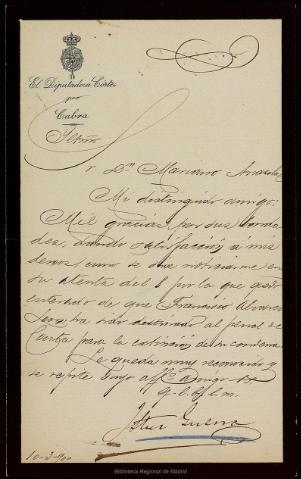 El Diputado a Cortes
por
Cabra
Sr Dn Mariano
Mi distinguido amigo:
Mil gracias por sus bonda
des, dando satisfacción a mis
deseos; como se me noticia en
su atenta del 8 por la que quedo
enterado de que Francisco Alvarez
ha sido destinado al penal de
Ceuta para la extinción de su condena.
Le queda muy reconocido y
se repite suyo affmo amigo
q. l. b. l. m.
10-3-900
Biblioteca Regional de Madrid